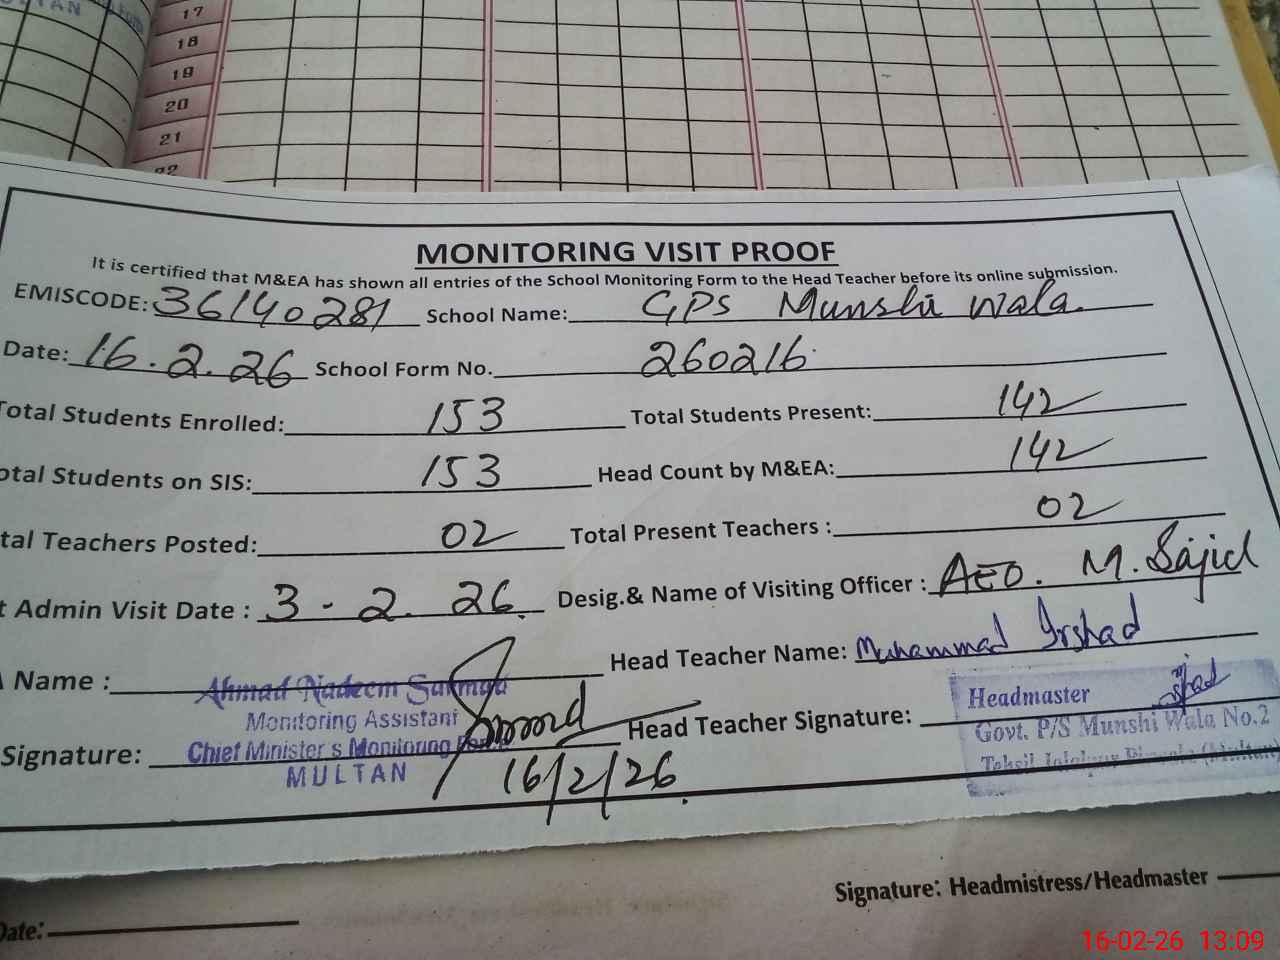 17
18
19
20
21
22
MONITORING VISIT PROOF
It is certified that M&EA has shown all entries of the School Monitoring Form to the Head Teacher before its online submission.
EMISCODE: 36140281 School Name: GPS Munshi Wala.
Date: 16.2.26 School Form No. 260216
Total Students Enrolled: 153 Total Students Present: 142
otal Students on SIS: 153 Head Count by M&EA: 142
tal Teachers Posted: 02 Total Present Teachers : 02
t Admin Visit Date : 3-2.26 Desig.& Name of Visiting Officer : AEO. M. Sajid
Name : Ahmad Nadeem Head Teacher Name: Muhammad Irshad
Monitoring Assistant
Signature: Chief Minister's Monitoring
MULTAN
16/2/26
Head Teacher Signature:
Headmaster
Govt. P/S Munshi Wala No.2
Tehsil Jalalpur Pirwala (Multan)
Signature: Headmistress/Headmaster
Date:
16-02-26 13:09